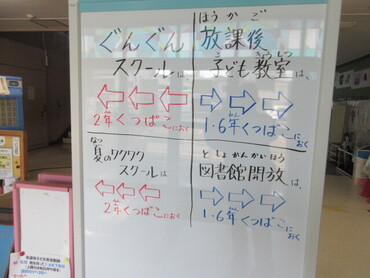 ぐんぐん
スクールは、
2年くつばこにおく
ほうかご
放課後
子ども教室は、
きょうしつ
1・6年くつばこにおく
なつ
夏のワクワク
スクールは
2年くつばこにおく
としょかんかいほう
図書館開放は、
1・6年くつばこにおく